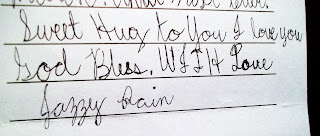 Sweet Hug to You I love you
God Bless. WITH Love
Jazzy Rain